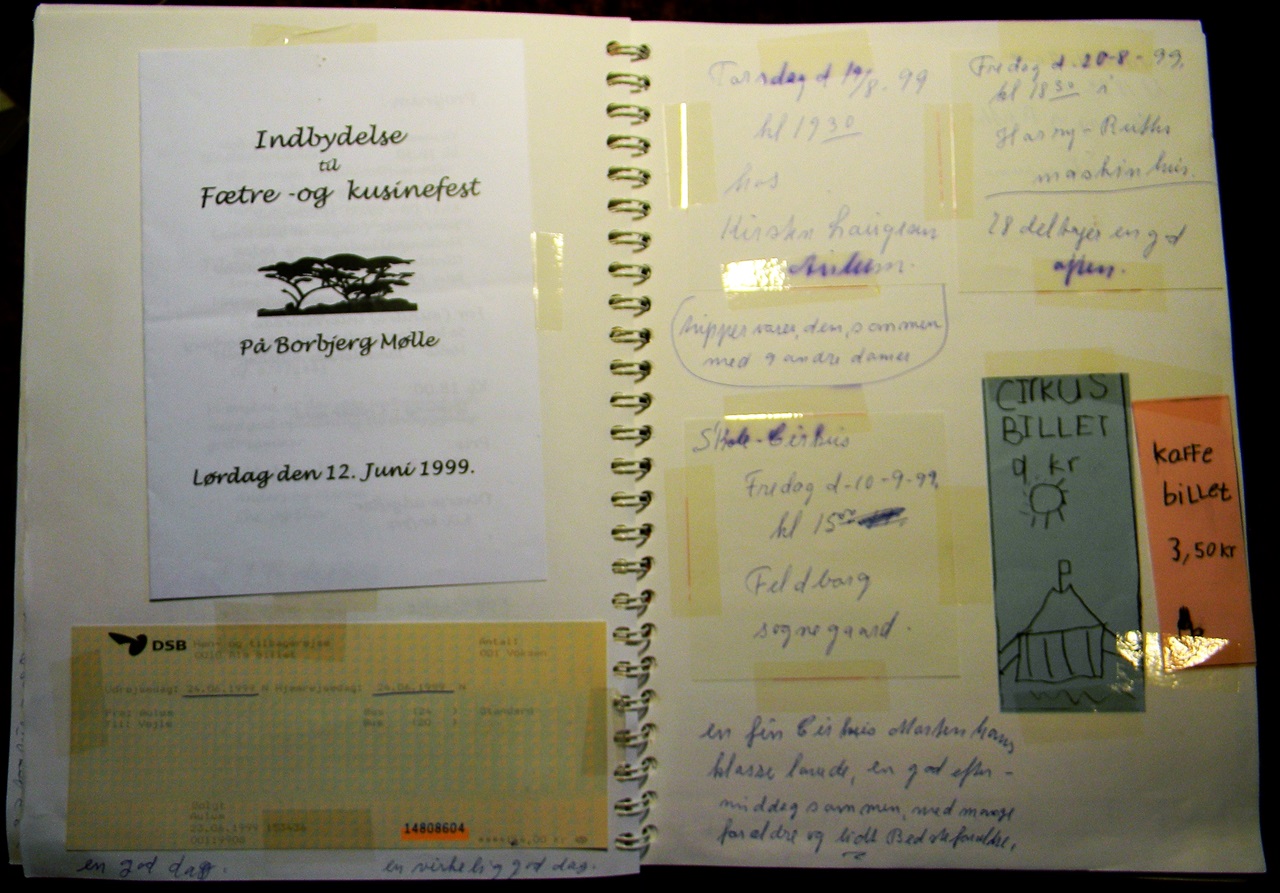 Indbydelse
til
Fætre -og kusinefest
På Borbjerg Mølle
Lørdag den 12. Juni 1999.
DSB
Antal:
001 Voksen
Udrejsedag: 24.06.1999 Hjemrejsedag: 24.06.1999
Fra: Aulum
Til: Vejle
Standard
Solgt
Aulum
23.06.1999
14808604
en god dag.
en virkelig god dag.
Torsdag d 19/8. 99
kl 19 30
hos
Kirsten Laugesen
Aulum.
med 9 andre damer
Fredag d. 20-8-99.
kl 18 30 i
maskinhus.
28 deltager en god
aften.
Skole-Cirkus
Fredag d-10-9-99.
kl 15
Feldborg
sognegaard.
CIRKUS
BILLET
9 kr
kaffe
billet
3,50 kr
en fin Cirkus Morten hans
klasse lavede, en god efter-
middag sammen, med mange
forældre og lidt Bedsteforældre.